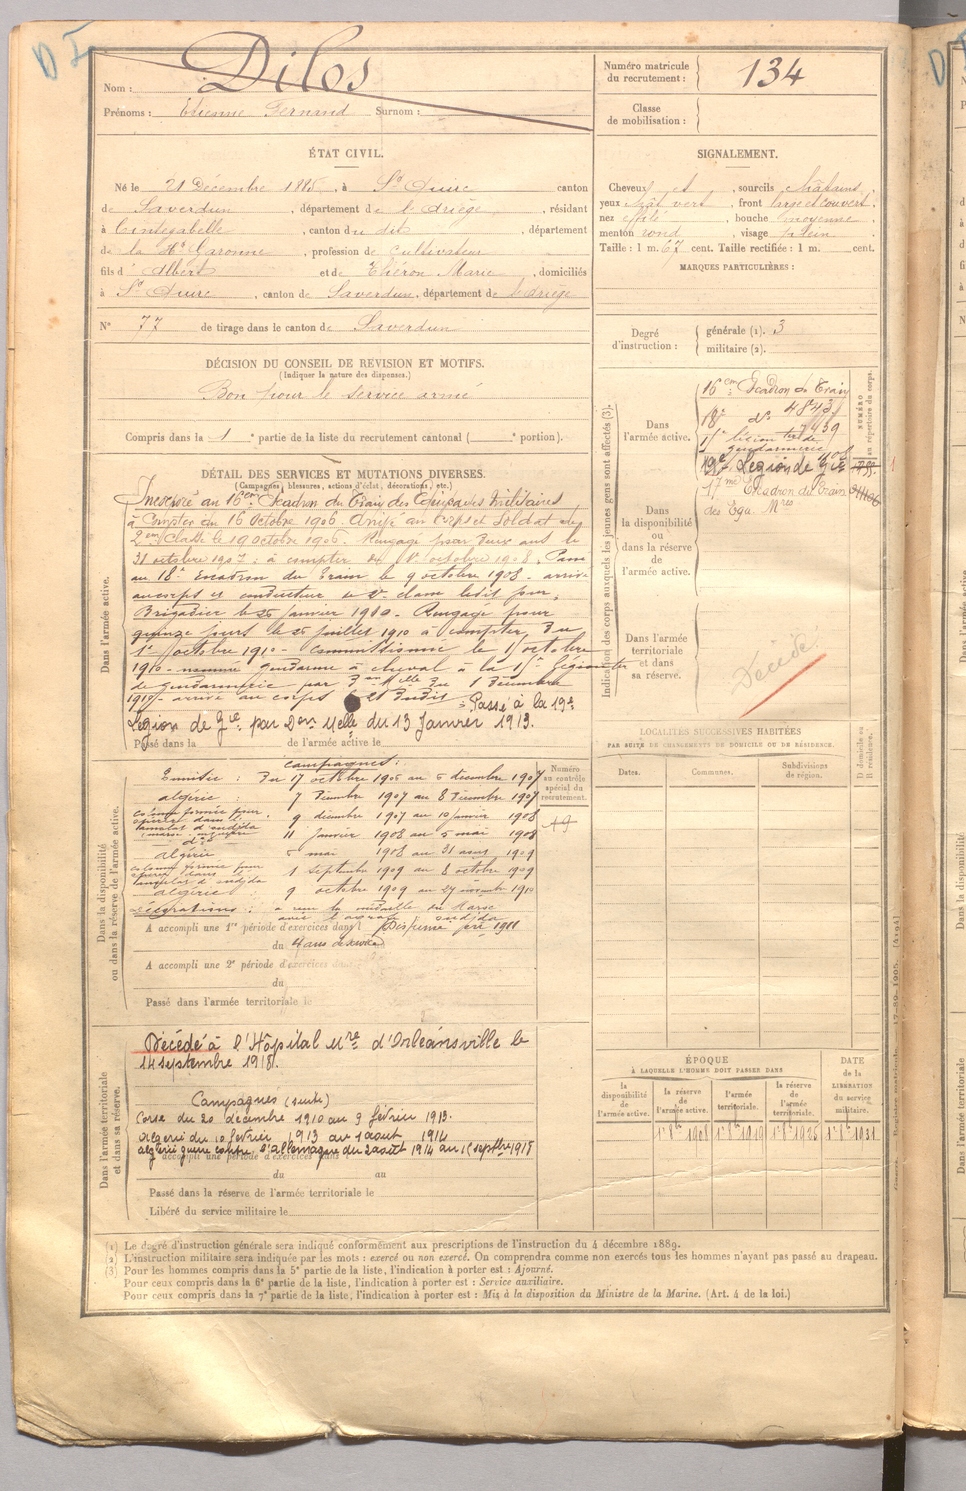 D I
Nom : Dilos
Prénoms : Etienne Fernand Surnom :
Numéro matricule du recrutement : 134
Classe de mobilisation :
ÉTAT CIVIL.
Né le 21 Décembre 1885, à St Quirc canton
de Saverdun, département de l'Ariège, résidant
à Cintegabelle, canton du dit, département
de la Hte Garonne, profession de Cultivateur
fils d' Albert et de Théron Marie, domiciliés
à St Quirc, canton de Saverdun, département de l'Ariège
No 77 de tirage dans le canton de Saverdun
SIGNALEMENT.
Cheveux et, sourcils châtains,
yeux chât vert, front large et couvert,
nez effilé, bouche moyenne,
menton rond, visage plein
Taille : 1 m. 67 cent. Taille rectifiée : 1 m. cent.
MARQUES PARTICULIÈRES :
Degré d'instruction :
générale (1). 3
militaire (2).
DÉCISION DU CONSEIL DE REVISION ET MOTIFS.
(Indiquer la nature des dispenses.)
Bon pour le service armé
Compris dans la 1e partie de la liste du recrutement cantonal ( e portion).
DÉTAIL DES SERVICES ET MUTATIONS DIVERSES.
(Campagnes, blessures, actions d'éclat, décorations, etc.)
Dans l'armée active.
au 16em Escadron du Train des Equipages Militaires
à compter du 16 Octobre 1906. Arrivé au corps et Soldat de
2em Classe le 19 octobre 1906. Rengagé pour deux ans le
31 octobre 1907 à compter du 1er octobre 1908. Passé
au 18e Escadron du Train le 9 octobre 1908 - arrivé
au corps et conducteur de 2e classe ledit jour.
Brigadier le 25 janvier 1910 - Rengagé pour
quinze jours le 25 juillet 1910 à compter du
1er octobre 1910 - Commissionné le octobre
1910 - nommé gendarme à cheval à la 15e Légion ter
de gendarmerie par Don Mlle du 1 Décembre
1910 - arrivé au corps le 21 dudit - Passé à la 19e
Légion de Gie par Don Melle du 13 Janvier 1913.
Passé dans la de l'armée active le
Dans la disponibilité ou dans la réserve de l'armée active.
Campagnes :
Tunisie : Du 17 octobre 1906 au 6 décembre 1907
algérie 7 Décembre 1907 au 8 Décembre 1907
colonne formée pour opérer dans l'amalat d'oudjda 9 décembre 1907 au 10 janvier 1908
do 11 janvier 1908 au 5 mai 1908
algérie 6 mai 1908 au 31 aout 1909
colonne formée pour opérer dans l'amalat d'oudjda 1 septembre 1909 au 8 octobre 1909
algérie 9 octobre 1909 au 27 novembre 1910
Décorations : a reçu la médaille du Maroc
avec l'agrafe : oudjda
A accompli une 1re période d'exercices dans l Dispensé pré 1911
du 4 ans de service
A accompli une 2e période d'exercices dans
du
Passé dans l'armée territoriale le
Numéro au contrôle spécial du recrutement.
49
Dans l'armée territoriale et dans sa réserve.
Décédé à l'Hôpital Mre d'Orléansville le
14 septembre 1918.
Campagnes (suite)
Corse du 20 décembre 1910 au 9 février 1913.
algérie du 10 février 1913 au 1 aout 1914
algérie guerre contre l'allemagne du 2 août 1914 au 14 septbre 1918
A accompli une période d'exercices dans
du au
Passé dans la réserve de l'armée territoriale le
Libéré du service militaire le
Indication des corps auxquels les jeunes gens sont affectés (3).
NUMÉRO au répertoire du corps.
Dans l'armée active.
16em Escadron du Train
18e do 4843
15e légion ter de gendarmerie 7439
19e Légion de Gie
Dans la disponibilité ou dans la réserve de l'armée active.
17me Escadron du Train
des Equ. Mres
Dans l'armée territoriale et dans sa réserve.
Décédé
LOCALITÉS SUCCESSIVES HABITÉES
PAR SUITE DE CHANGEMENTS DE DOMICILE OU DE RÉSIDENCE.
Dates. Communes. Subdivisions de région. D domicile ou R résidence.
ÉPOQUE
À LAQUELLE L'HOMME DOIT PASSER DANS
DATE de la LIBÉRATION du service militaire.
la disponibilité de l'armée active. la réserve de l'armée active. l'armée territoriale. la réserve de l'armée territoriale.
1er 8bre 1908 1er 8bre 1919 1er 8bre 1925 1er 8bre 1931
(1) Le degré d'instruction générale sera indiqué conformément aux prescriptions de l'instruction du 4 décembre 1889.
(2) L'instruction militaire sera indiquée par les mots : exercé ou non exercé. On comprendra comme non exercés tous les hommes n'ayant pas passé au drapeau.
(3) Pour les hommes compris dans la 5e partie de la liste, l'indication à porter est : Ajourné.
Pour ceux compris dans la 6e partie de la liste, l'indication à porter est : Service auxiliaire.
Pour ceux compris dans la 7e partie de la liste, l'indication à porter est : Mis à la disposition du Ministre de la Marine. (Art. 4 de la loi.)